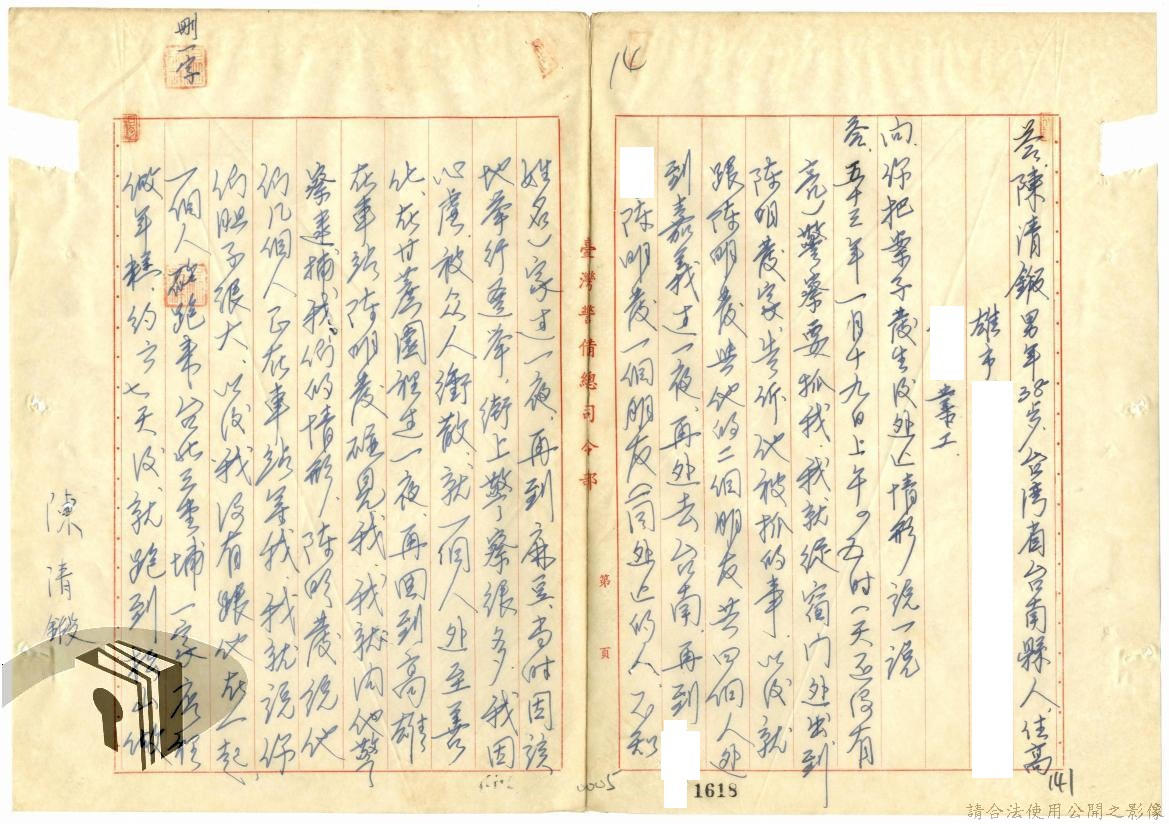 14
答、陳清鍛 男年38岁、台湾省台南縣人、住高
雄市
業工、
问、你把案子發生後逃亡情形说一说
答、五十三年一月十九日上午四、五时(天还没有
亮)警察要抓我、我就從宿门逃出到
陈明發家、告訴他被抓的事、以後就
跟陈明發與他的二個朋友共四個人逃
到嘉義过一夜、再逃去台南、再到
陈明發一個朋友(同逃亡的人不知
141
1618
臺灣警備總司令部
第 頁
姓名)家过一夜、再到麻豆、当时因該
地举行選举、街上警察很多、我因
心虚、被众人衝散、就一個人逃至善
化、在甘蔗園裡过一夜、再回到高雄
在車站陈明發碰見我、我就问他警
察逮捕我们的情形、陈明發说他
们几個人正在車站等我、我就说你
们胆子很大、以後我没有跟他在一起、
一個人跑來台北三重埔一家
做年糕、约六七天後就跑到
刪一字
陳清鍛
0005
請合法使用公開之影像